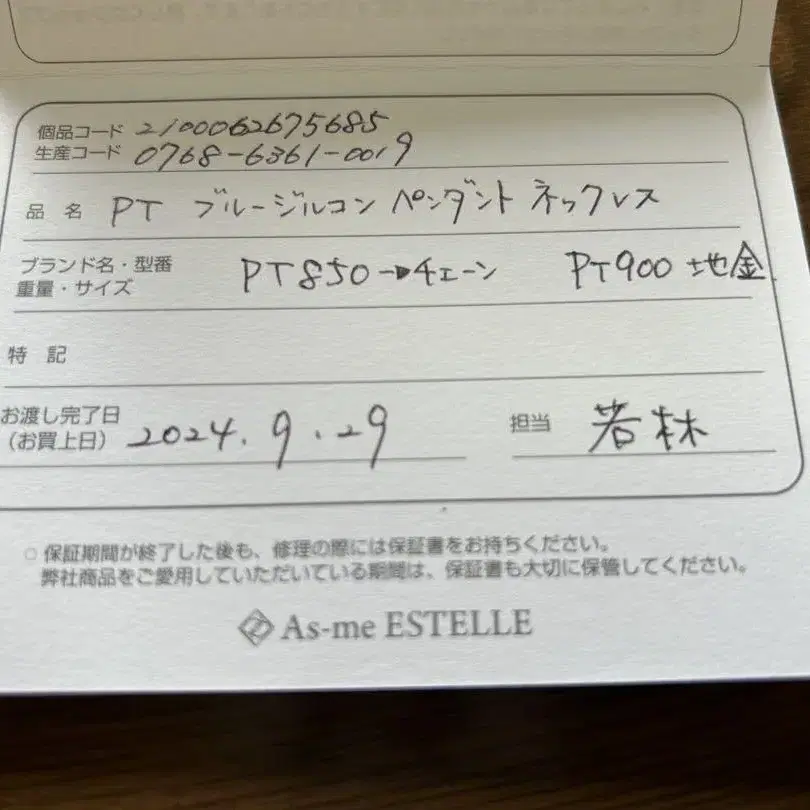 個品コード 2100062675685
生産コード 0768-6361-0019
品 名 PT ブルージルコン ペンダント ネックレス
ブランド名・型番 PT850→チェーン PT900 地金
重量・サイズ
特 記
お渡し完了日
(お買上日) 2024.9.29 担当 若林
○ 保証期間が終了した後も、修理の際には保証書をお持ちください。
弊社商品をご愛用していただいている期間は、保証書も大切に保管してください。
As-me ESTELLE